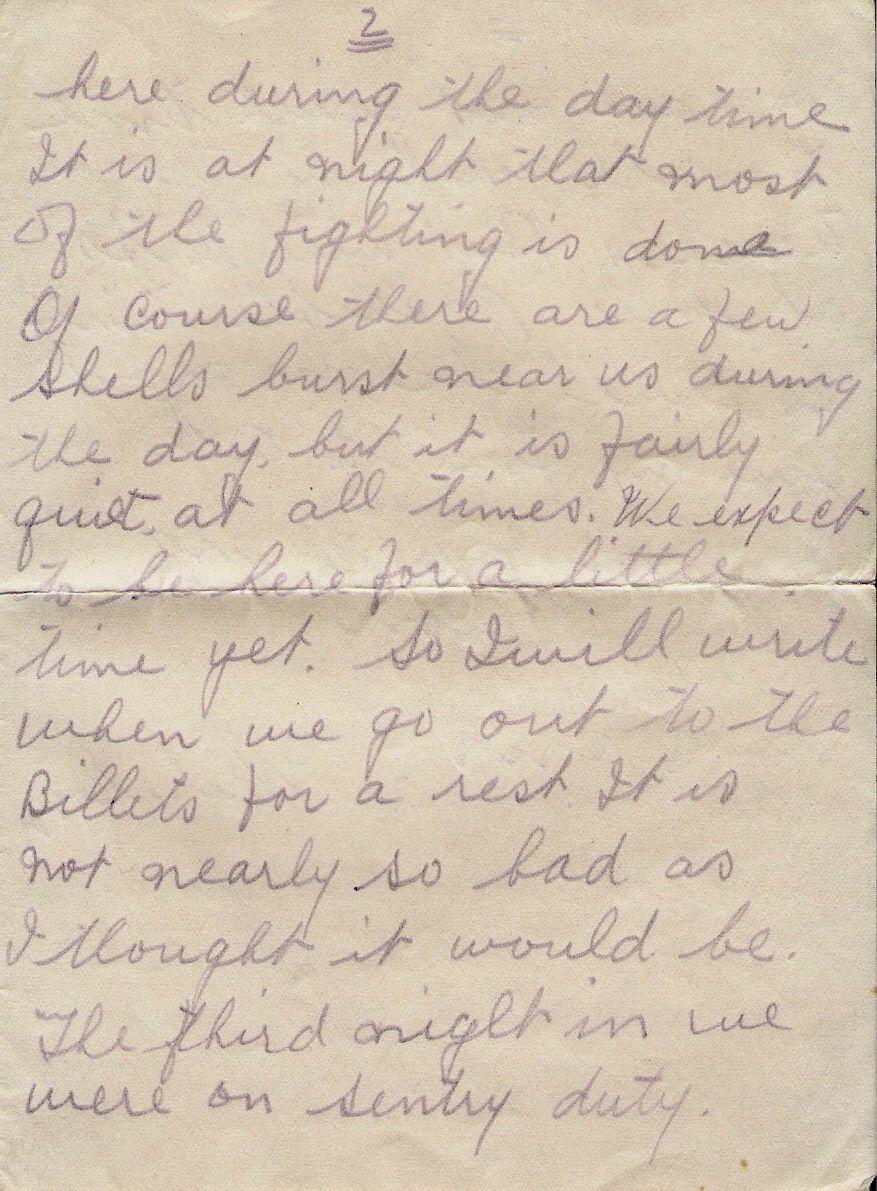 2
here during the day time
It is at night that most
of the fighting is done
Of course there are a few
shells burst near us during
the day, but it is fairly
quiet, at all times. We expect
to be here for a little
time yet. So I will write
when we go out to the
Billets for a rest. It is
not nearly so bad as
I thought it would be.
The third night in we
were on sentry duty.